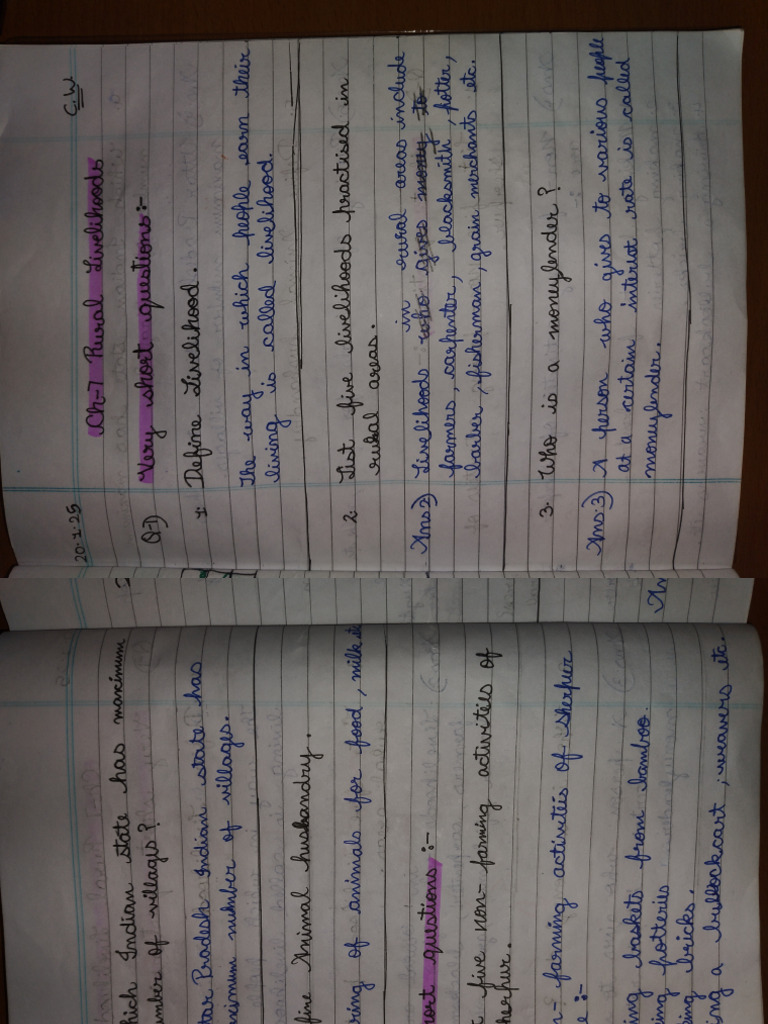 20.1.25
C.W
Ch-7 Rural Livelihoods
Q-I) Very short questions:-
1. Define Livelihood.
The way in which people earn their
living is called livelihood.
2. List five livelihoods practised in
rural areas.
Ans:2) Livelihoods who gives money to in rural areas include
farmers, carpenter, blacksmith, potter,
barber, fisherman, grain merchants etc.
3. Who is a moneylender?
Ans:3) A person who gives to various people
at a certain interest rate is called
moneylender.
hich Indian state has maximum
mber of villages?
tar Pradesh Indian state has
ximum number of villages.
fine Animal husbandry.
ring of animals for food, milk etc
ort questions:-
t five non-farming activities of
herpur.
n-farming activities of sherpur
e:-
ing baskets from bamboo.
ing potteries
ing bricks.
ng a bullockcart, weavers etc.
An